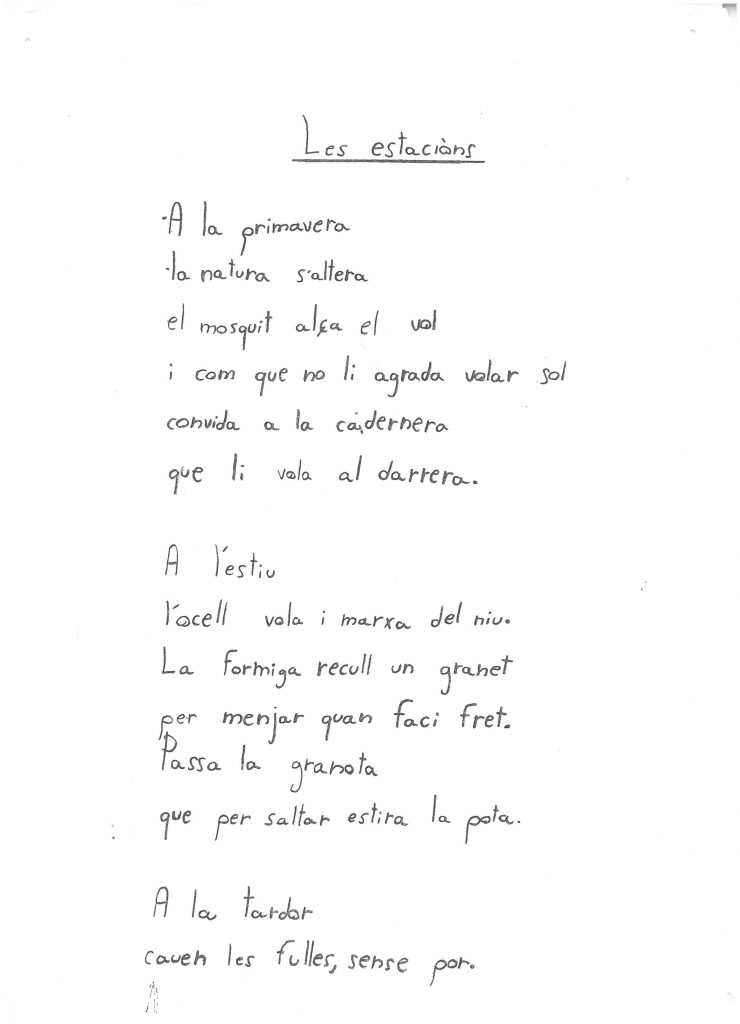 Les estaciòns
·A la primavera
·la natura s'altera
el mosquit alça el vol
i com que no li agrada volar sol
convida a la cadernera
que li vola al darrera.
A l'estiu
l'ocell vola i marxa del niu.
La formiga recull un granet
per menjar quan faci fret.
Passa la granota
que per saltar estira la pota.
A la tardor
cauen les fulles, sense por.
A